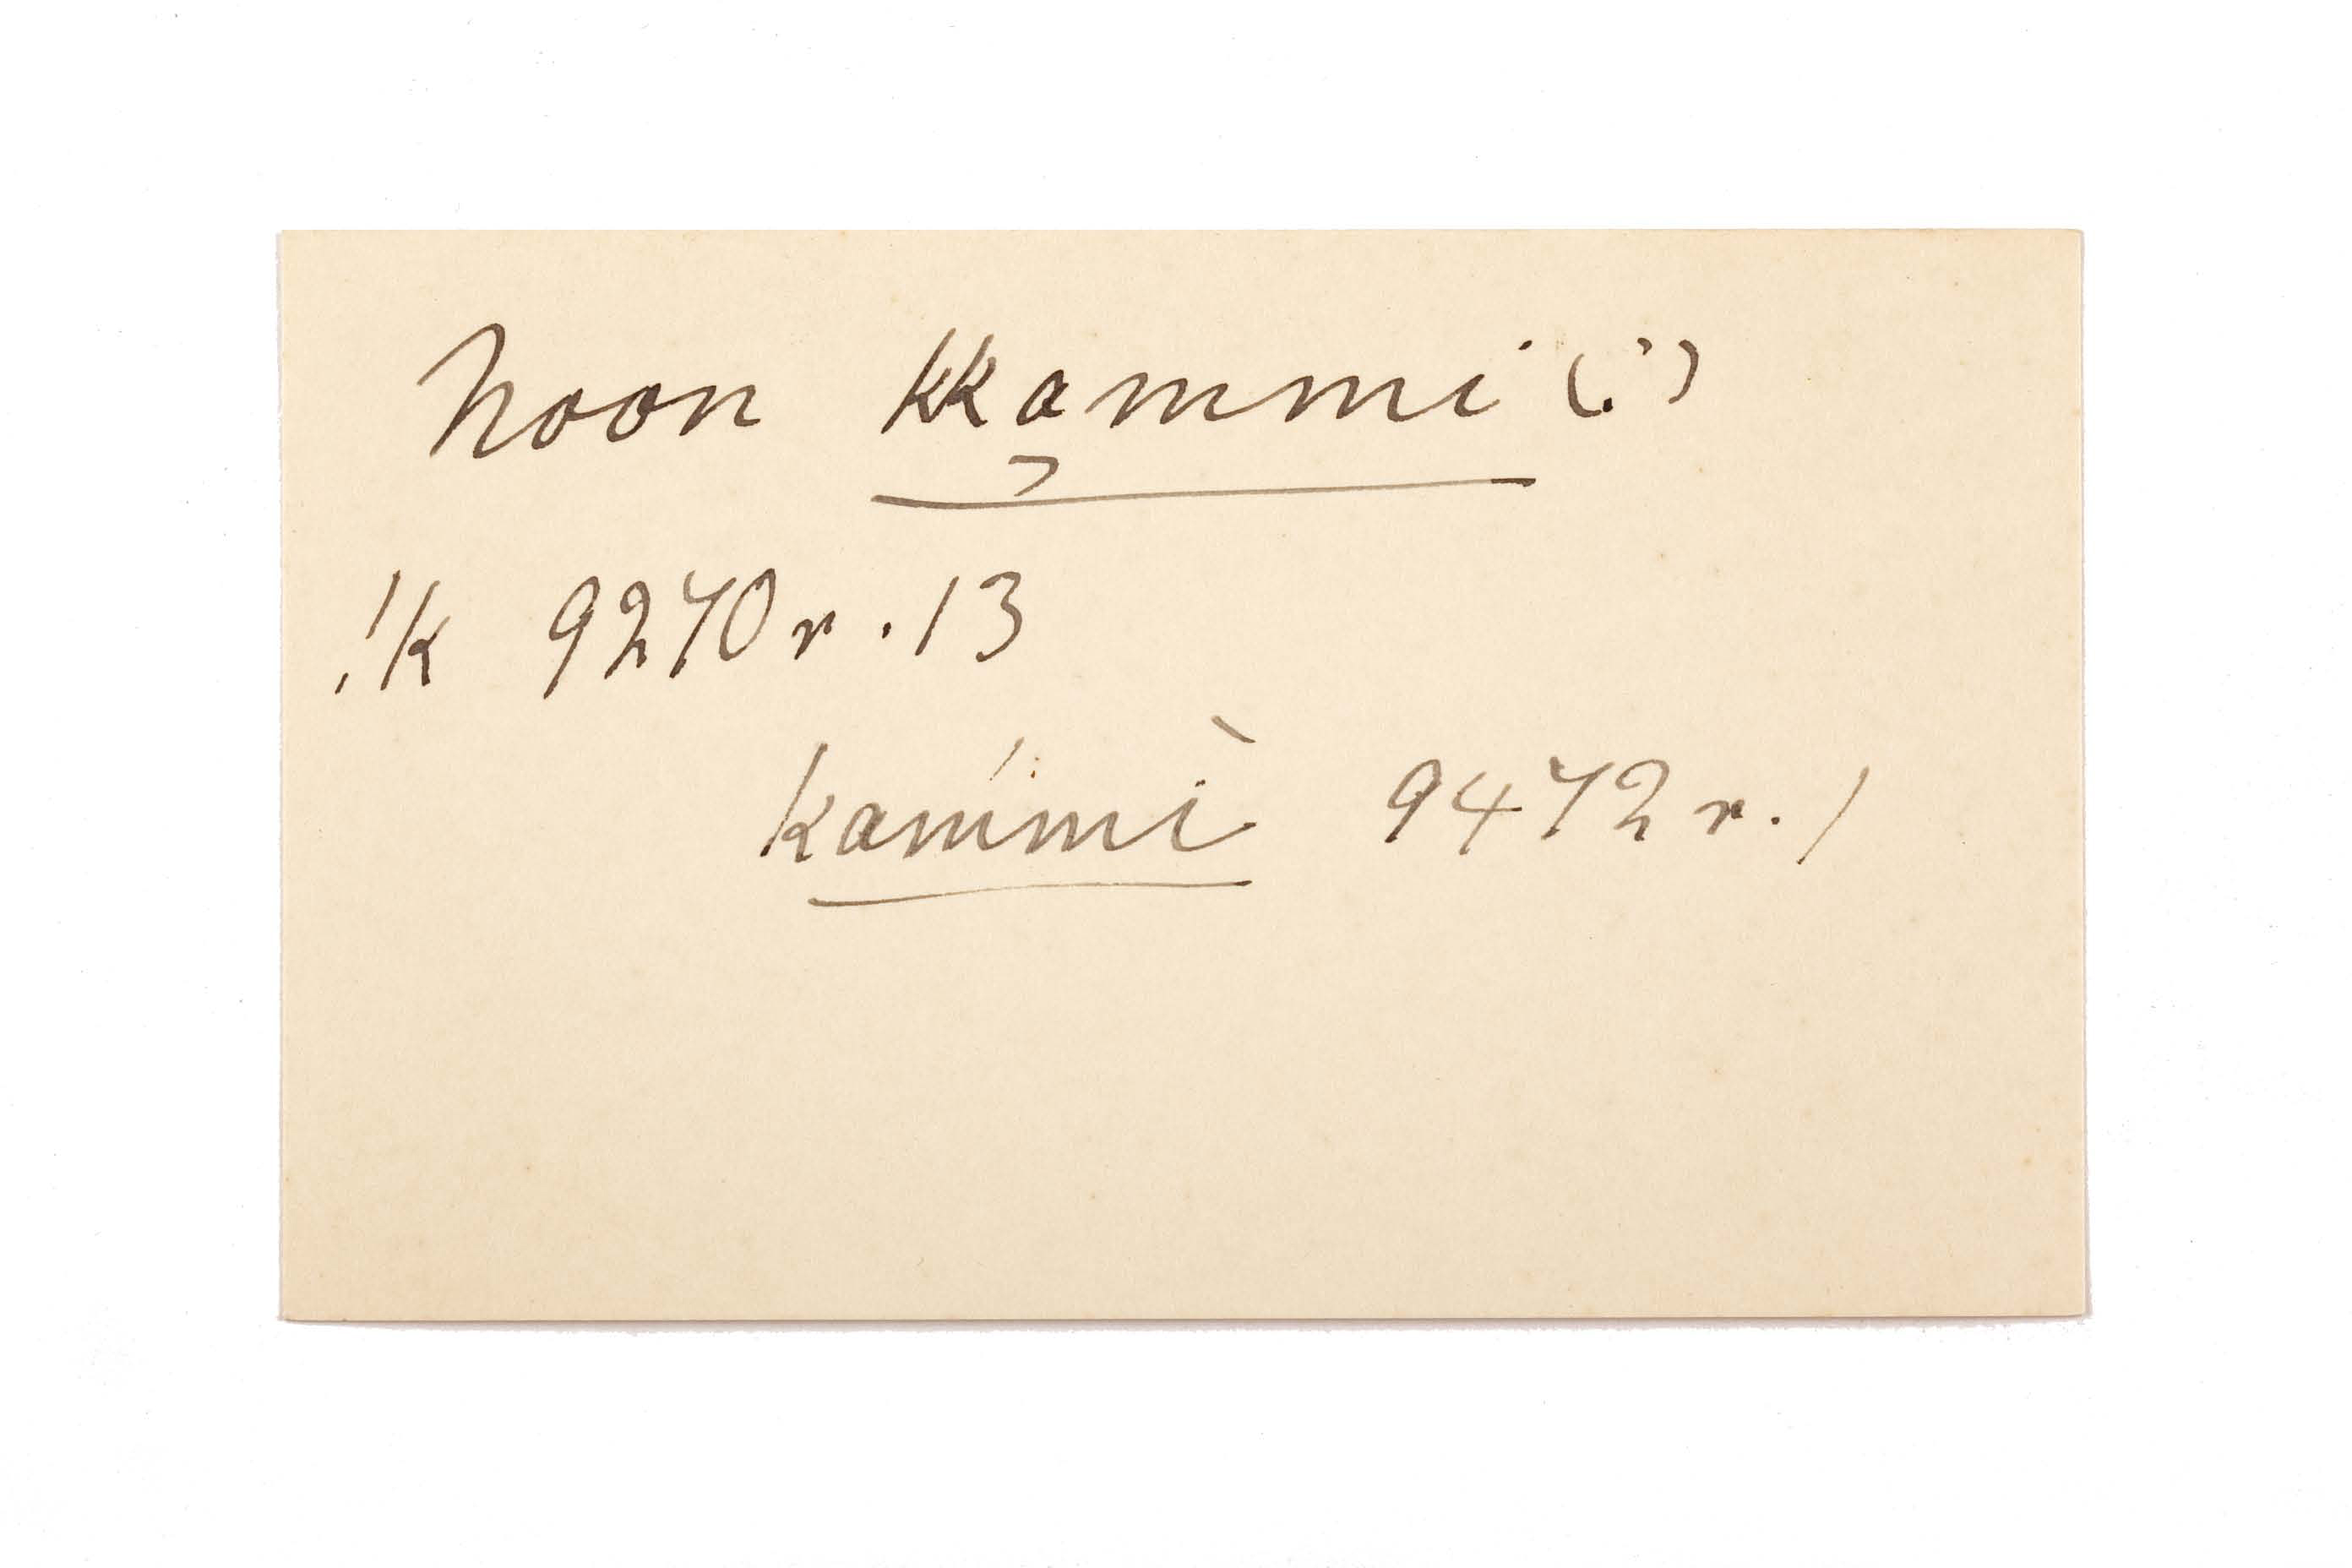 noon kkammi (?)
!k 9270 r. 13
kam̍mì 9472 r. 1